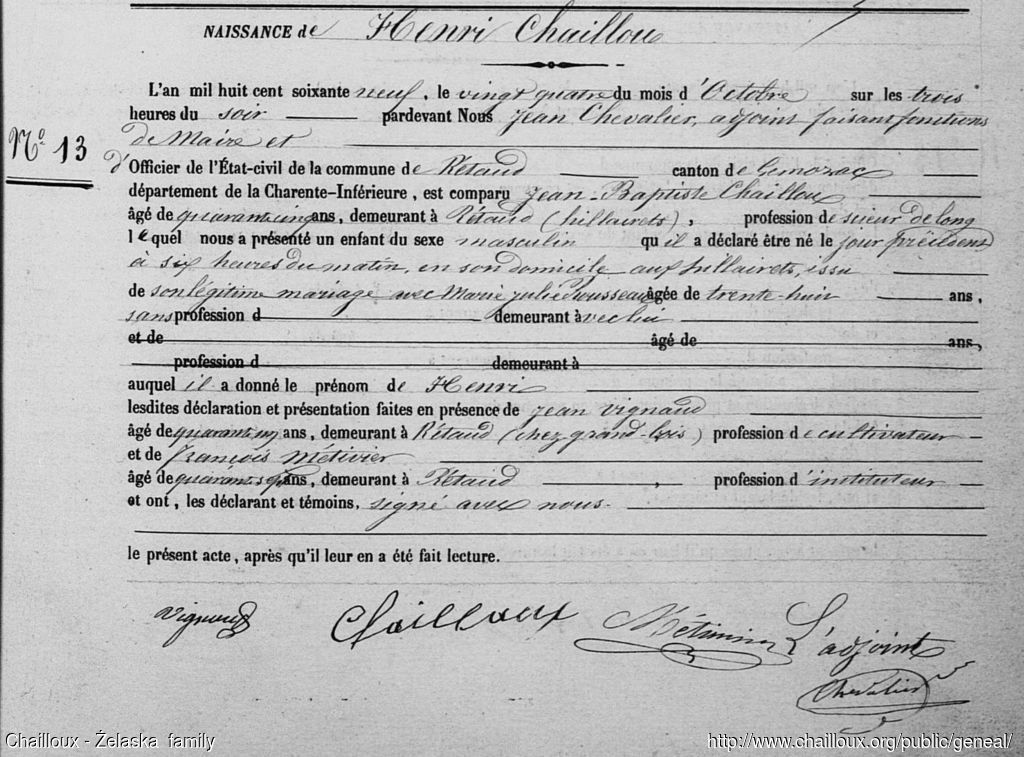 NAISSANCE de Henri Chaillou
L'an mil huit cent soixante neuf, le vingt quatre du mois d'Octobre sur les trois
heures du soir pardevant Nous Jean Chevalier, adjoint faisant fonctions
de Maire et
N.º 13
d'Officier de l'État-civil de la commune de Rétaud canton de Gemozac
département de la Charente-Inférieure, est comparu Jean-Baptiste Chaillou
âgé de quarante cinq ans, demeurant à Rétaud (hillairets), profession de scieur de long
lequel nous a présenté un enfant du sexe masculin qu'il a déclaré être né le jour précédent
à six heures du matin, en son domicile aux hillairets, issu
de son légitime mariage avec Marie Julie Rousseau âgée de trente-huit ans,
sans profession d demeurant à vec lui
et de âgé de ans,
profession d demeurant à
auquel il a donné le prénom de Henri
lesdites déclaration et présentation faites en présence de Jean Vignaud
âgé de ans, demeurant à Rétaud (chez grand-) profession de cultivateur
et de François Métivier
âgé de quarante sept ans, demeurant à Rétaud, profession d'instituteur
et ont, les déclarant et témoins, signé avec nous.
le présent acte, après qu'il leur en a été fait lecture.
Vignaud Chailloux Métivier L'adjoint
Chevalier
Chailloux - Želaska family http://www.chailloux.org/public/geneal/